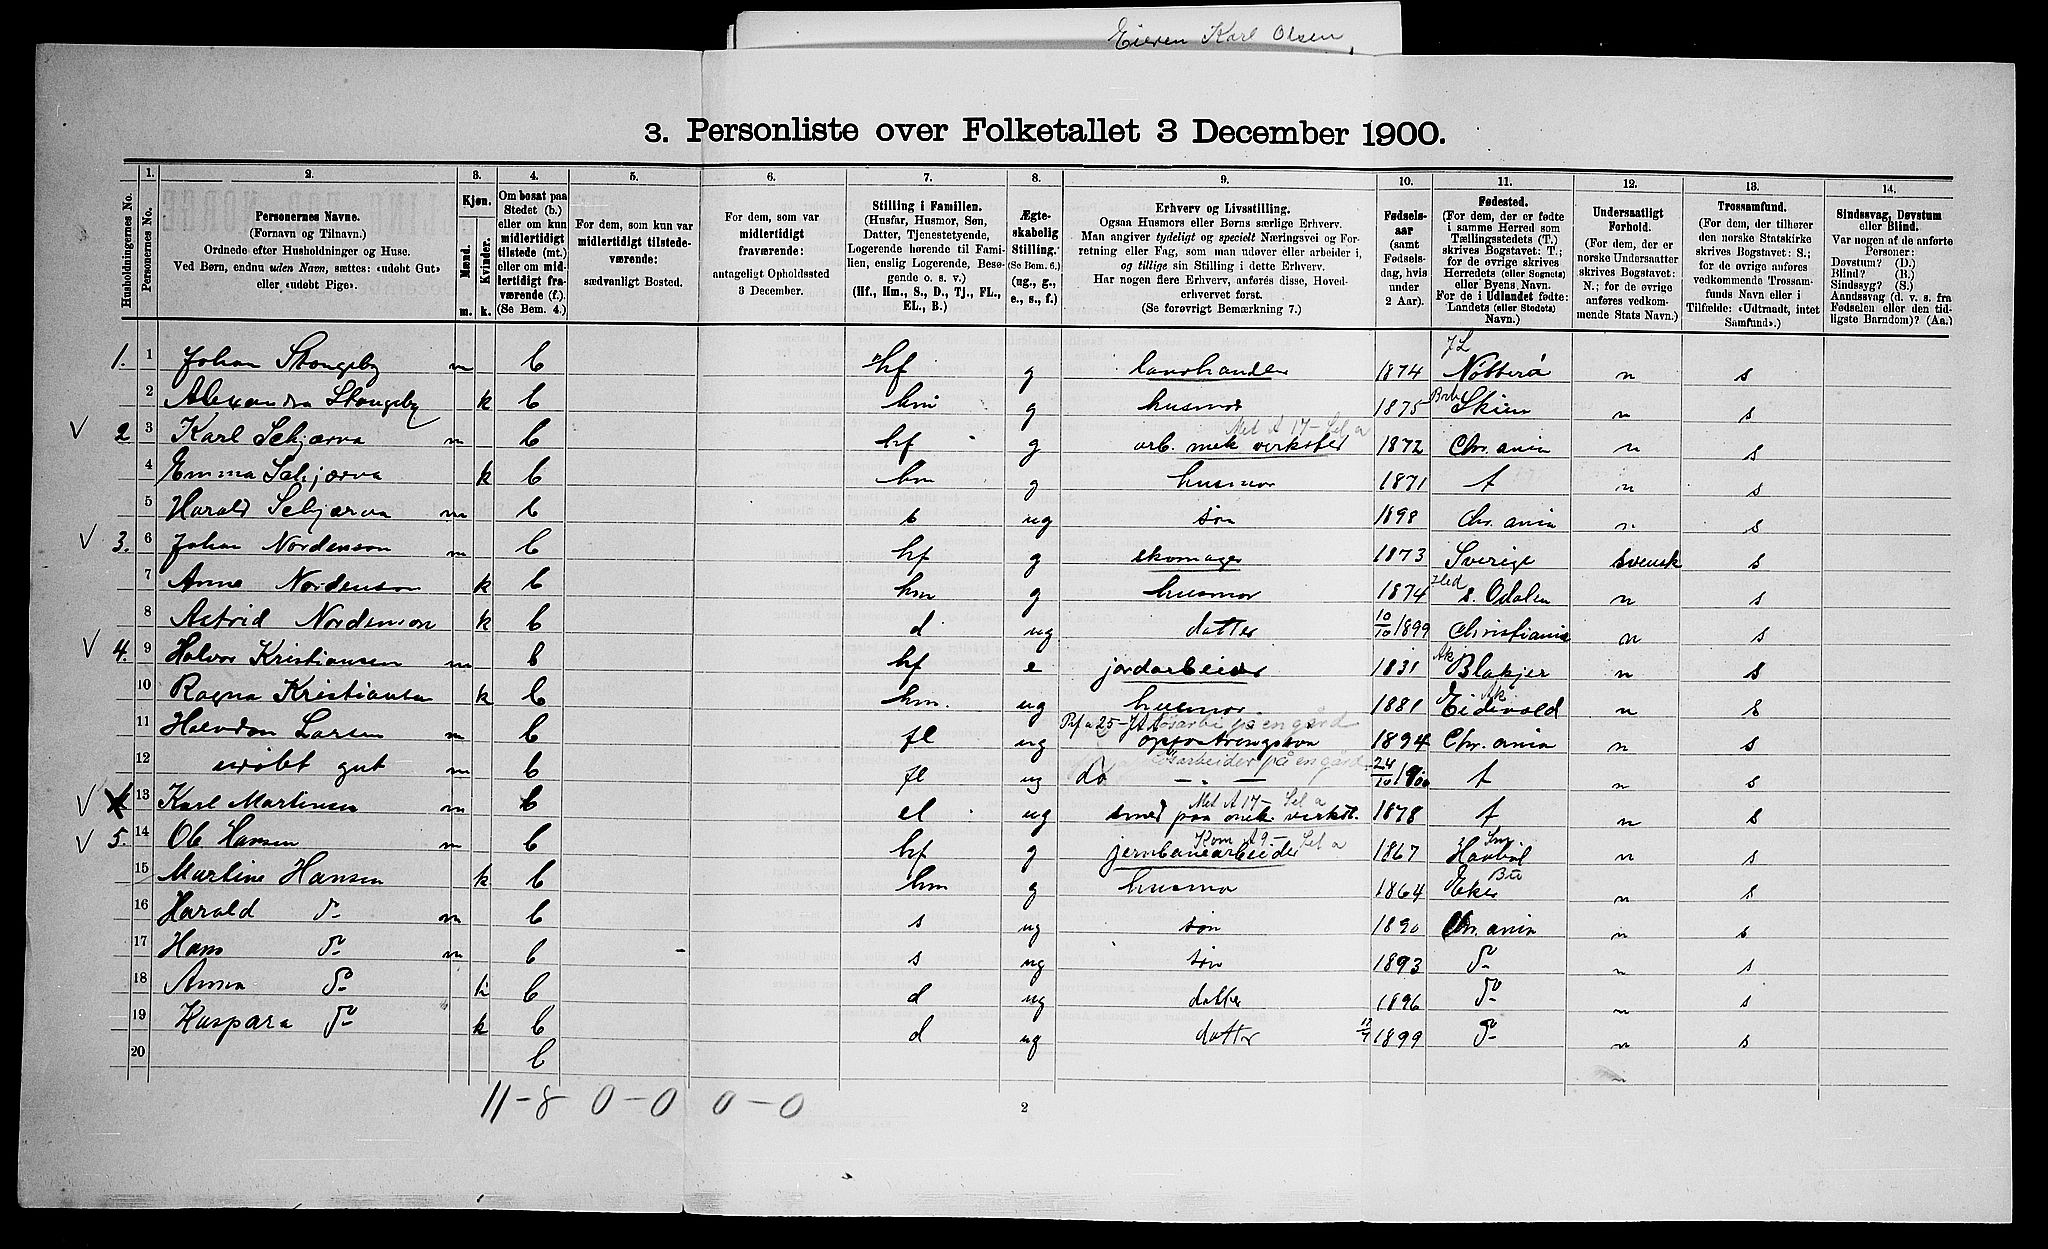 Eieren Karl Olsen
3. Personliste over Folketallet 3 December 1900.
1. 2. 3. 4. 5. 6. 7. 8. 9. 10. 11. 12. 13. 14.
Husholdningernes No.
Personernes No.
Personernes Navne.
(Fornavn og Tilnavn.)
Ordnede efter Husholdninger og Huse.
Ved Børn, endnu uden Navn, sættes: «udøbt Gut»
eller «udøbt Pige».
Kjøn.
Mænd.
Kvinder.
m. k.
Om bosat paa
Stedet (b.)
eller om kun
midlertidigt
tilstede (mt.)
eller om mid-
lertidigt fra-
værende (f.)
(Se Bem. 4.)
For dem, som kun var
midlertidigt tilstede-
værende:
sædvanligt Bosted.
For dem, som var
midlertidigt
fraværende:
antageligt Opholdssted
3 December.
Stilling i Familien.
(Husfar, Husmor, Søn,
Datter, Tjenestetyende,
Logerende hørende til Fami-
lien, enslig Logerende, Besø-
gende o. s. v.)
(Hf., Hm., S., D., Tj., FL.,
EL., B.)
Ægte-
skabelig
Stilling.
(Se Bem. 6.)
(ug., g.,
e., s., f.)
Erhverv og Livsstilling.
Ogsaa Husmors eller Børns særlige Erhverv.
Man angiver tydeligt og specielt Næringsvei og For-
retning eller Fag, som man udøver eller arbeider i,
og tillige sin Stilling i dette Erhverv.
Har nogen flere Erhverv, anføres disse, Hoved-
erhvervet først.
(Se forøvrigt Bemærkning 7.)
Fødsels-
aar
(samt
Fødsels-
dag, hvis
under
2 Aar).
Fødested.
(For dem, der er fødte
i samme Herred som
Tællingsstedets (T.)
skrives Bogstavet: T.;
for de øvrige skrives
Herredets (eller Sognets)
eller Byens Navn.
For de i Udlandet fødte:
Landets (eller Stedets)
Navn.)
Undersaatligt
Forhold.
(For dem, der er
norske Undersaatter
skrives Bogstavet:
N.; for de øvrige
anføres vedkom-
mende Stats Navn.)
Trossamfund.
(For dem, der tilhører
den norske Statskirke
skrives Bogstavet: S.;
for de øvrige anføres
vedkommende Trossam-
funds Navn eller i
Tilfælde: «Udtraadt, intet
Samfund».)
Sindssvag, Døvstum
eller Blind.
Var nogen af de anførte
Personer:
Døvstum? (D.)
Blind? (B.)
Sindssyg? (S.)
Aandssvag (d. v. s. fra
Fødselen eller den tid-
ligste Barndom)? (Aa.)
1. 1 Johan Skongsby m b hf g lanhandler 1874 JL Nøtterø n s
2 Alexandra Skongsby k b hm g husmor 1875 Brb Skien n s
2 3 Karl Schjærva m b hf g arb. mek verksted Met A 17 – Sel a 1872 Chr.ania n s
4 Emma Schjærva k b hm g husmor 1871 t n s
5 Harald Schjærva m b s ug søn 1898 Chr.ania n s
3. 6 Johan Nordenson m b hf g skomager 1873 Sverige svensk s
7 Anna Nordenson k b hm g husmor 1874 Hed s. Odalen n s
8 Astrid Nordenson k b d ug datter 10/10 1899 Christiania n s
4. 9 Halvor Kristiansen m b hf e jordarbeider 1831 Ak Blakjer n s
10 Ragna Kristiansen k b hm. ug husmor 1881 Ak Eidsvold n s
11 Halvdan Larsen m b fl ug på en gård 1894 Chr.ania n s
12 udøbt gut m b fl ug do – " – arbeider på en gård 24/10 1900 t n s
13 Karl Martinsen m b el ug smed paa mek. verkst. Met A 17 – Sel a 1878 t n s
5. 14 Ole Hansen m b hf g jernbanearbeider Kom A9 – Sel a 1867 Sm Haabøl n s
15 Martine Hansen k b hm g husmor 1864 Eker Bu n s
16 Harald do m b s ug søn 1890 Chr.ania n s
17 Hans do m b s ug søn 1893 do n s
18 Anna do k b d ug datter 1896 do n s
19 Kaspara do k b d ug datter 1899 do n s
20 b n
11 – 8 0 – 0 0 – 0
2